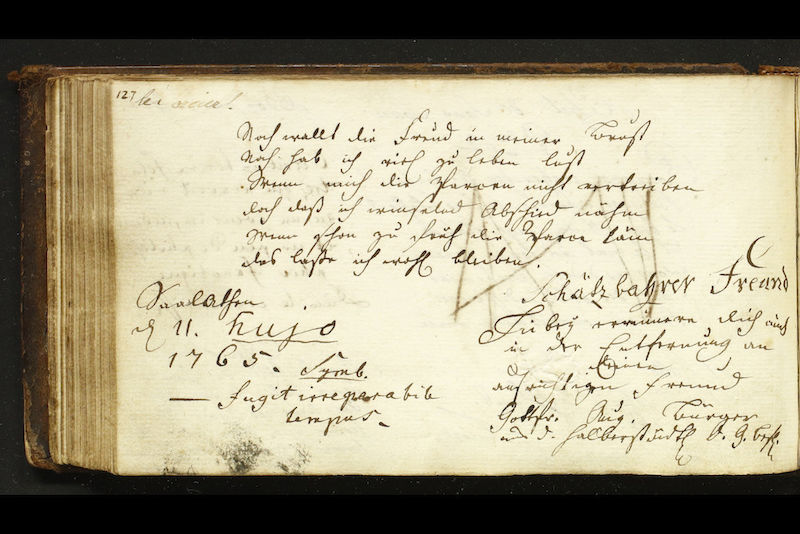 127
Noch wallt die Freud in meiner Brust
Noch hab ich viel zu leben lust
Wenn mich die Parcen nicht vertreiben
doch daß ich winselnd Abschied nähm
Wenn schon zu früh die Parce käm
das laße ich wohl bleiben.
Saalathen
d 11. hujo
1765. Symb.
— fugit irreparabile
tempus.
Schätzbahrer Freund
Hiebey erinnere dich auch
in der Entfernung an
deinen
aufrichtigen Freund
Gottfr. Aug. Bürger
aus d. Halberstädtl. G. G. befl.